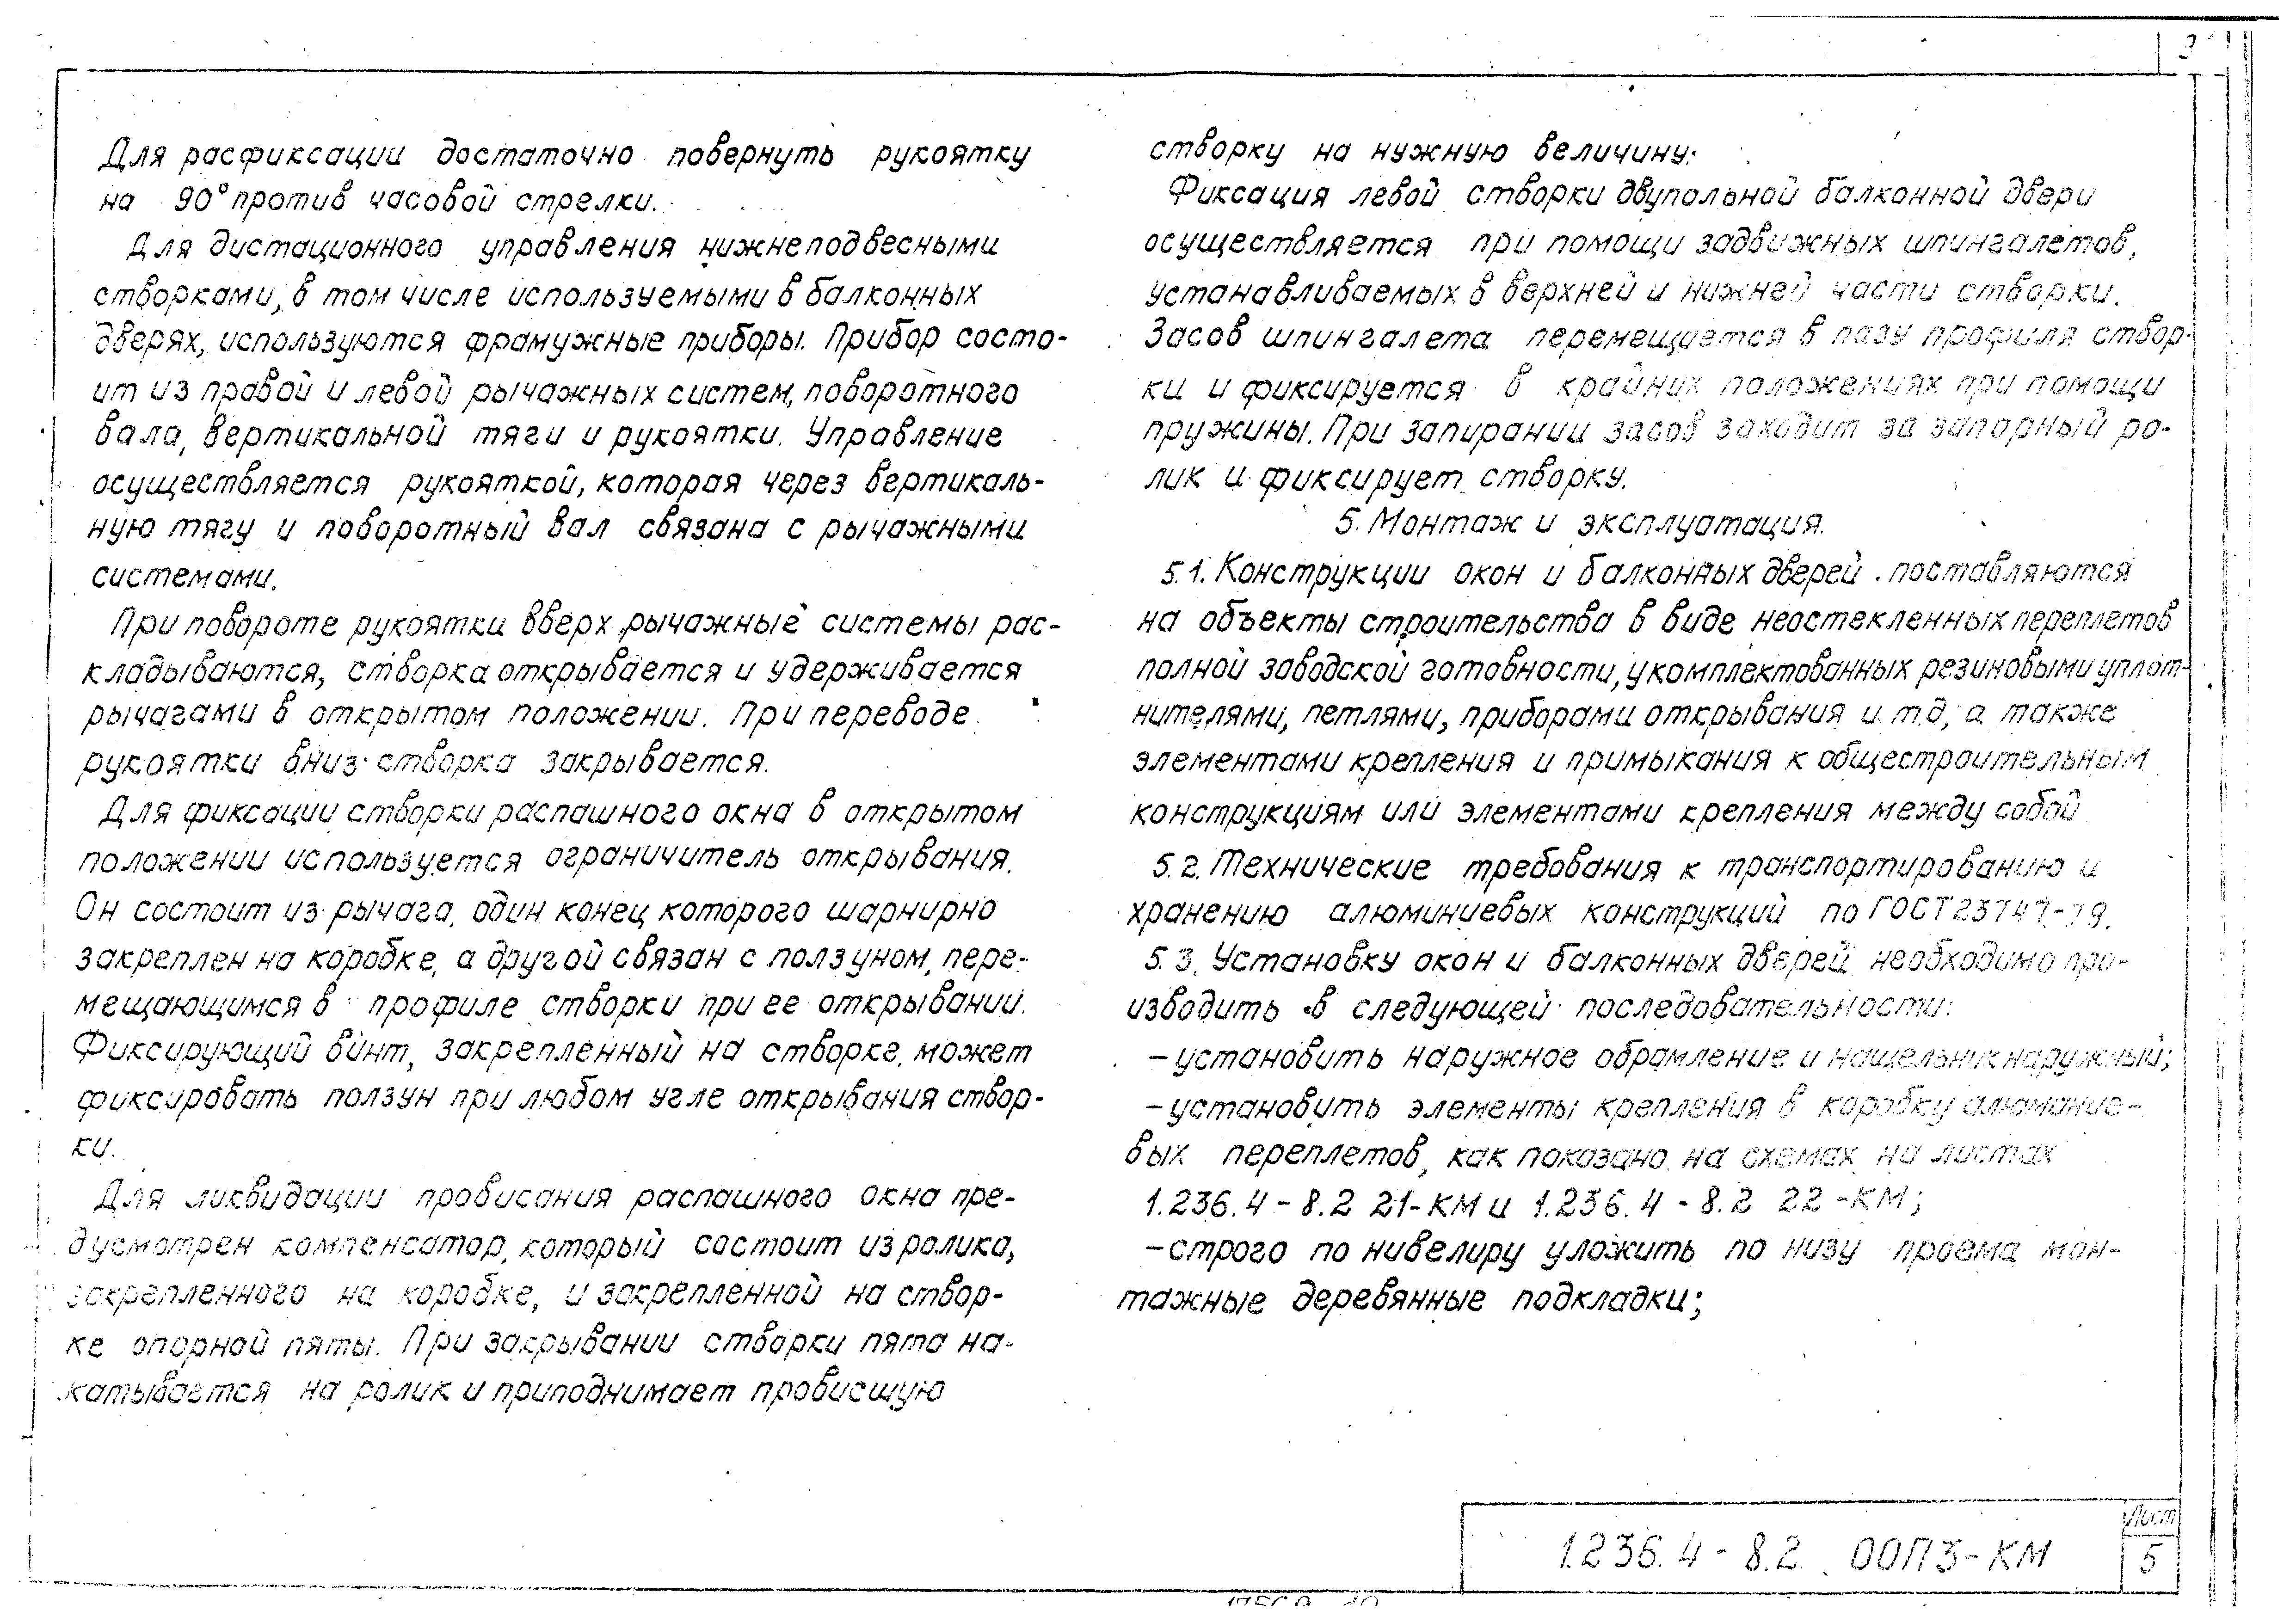 Для расфиксации достаточно повернуть рукоятку
на 90° против часовой стрелки.
Для дистационного управления нижнеподвесными
створками, в том числе используемыми в балконных
дверях, используются фрамужные приборы. Прибор состо-
ит из правой и левой рычажных систем, поворотного
вала, вертикальной тяги и рукоятки. Управление
осуществляется рукояткой, которая через вертикаль-
ную тягу и поворотный вал связана с рычажными
системами.
При повороте рукоятки вверх рычажные системы рас-
кладываются, створка открывается и удерживается
рычагами в открытом положении. При переводе
рукоятки вниз створка закрывается.
Для фиксации створки распашного окна в открытом
положении используется ограничитель открывания.
Он состоит из рычага, один конец которого шарнирно
закреплен на коробке, а другой связан с ползуном, пере-
мещающимся в профиле створки при ее открывании.
Фиксирующий винт, закрепленный на створке, может
фиксировать ползун при любом угле открывания створ-
ки.
Для ликвидации провисания распашного окна пре-
дусмотрен компенсатор, который состоит из ролика,
закрепленного на коробке, и закрепленной на створ-
ке опорной пяты. При закрывании створки пята на-
катывается на ролик и приподнимает провисшую
створку на нужную величину.
Фиксация левой створки двупольной балконной двери
осуществляется при помощи задвижных шпингалетов,
устанавливаемых в верхней и нижней части створки.
Засов шпингалета перемещается в пазу профиля створ-
ки и фиксируется в крайних положениях при помощи
пружины. При запирании засов заходит за запорный ро-
лик и фиксирует створку.
5. Монтаж и эксплуатация.
5.1. Конструкции окон и балконных дверей поставляются
на объекты строительства в виде неостекленных переплетов
полной заводской готовности, укомплектованных резиновыми уплот-
нителями, петлями, приборами открывания и т.д, а также
элементами крепления и примыкания к общестроительным
конструкциям или элементами крепления между собой
5.2. Технические требования к транспортированию и
хранению алюминиевых конструкций по ГОСТ 23747-79.
5.3. Установку окон и балконных дверей необходимо про-
изводить в следующей последовательности:
- установить наружное обрамление и нащельник наружный;
- установить элементы крепления в коробку алюмание-
вых переплетов, как показано на схемах на листах
1.236.4 - 8.2 21-КМ и 1.236.4 - 8.2 22-КМ;
- строго по нивелиру уложить по низу проема мон-
тажные деревянные подкладки;
1.236.4 - 8.2. 00ПЗ-КМ
Лист
5